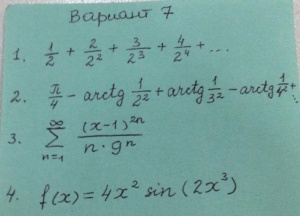 Вариант 7
1. 1/2 + 2/2² + 3/2³ + 4/2⁴ + ...
2. π/4 - arctg 1/2² + arctg 1/3² - arctg 1/4² +
3. ∑_{n=1}^{∞} (x-1)^{2n} / (n · 9ⁿ)
4. f(x) = 4x² sin (2x³)